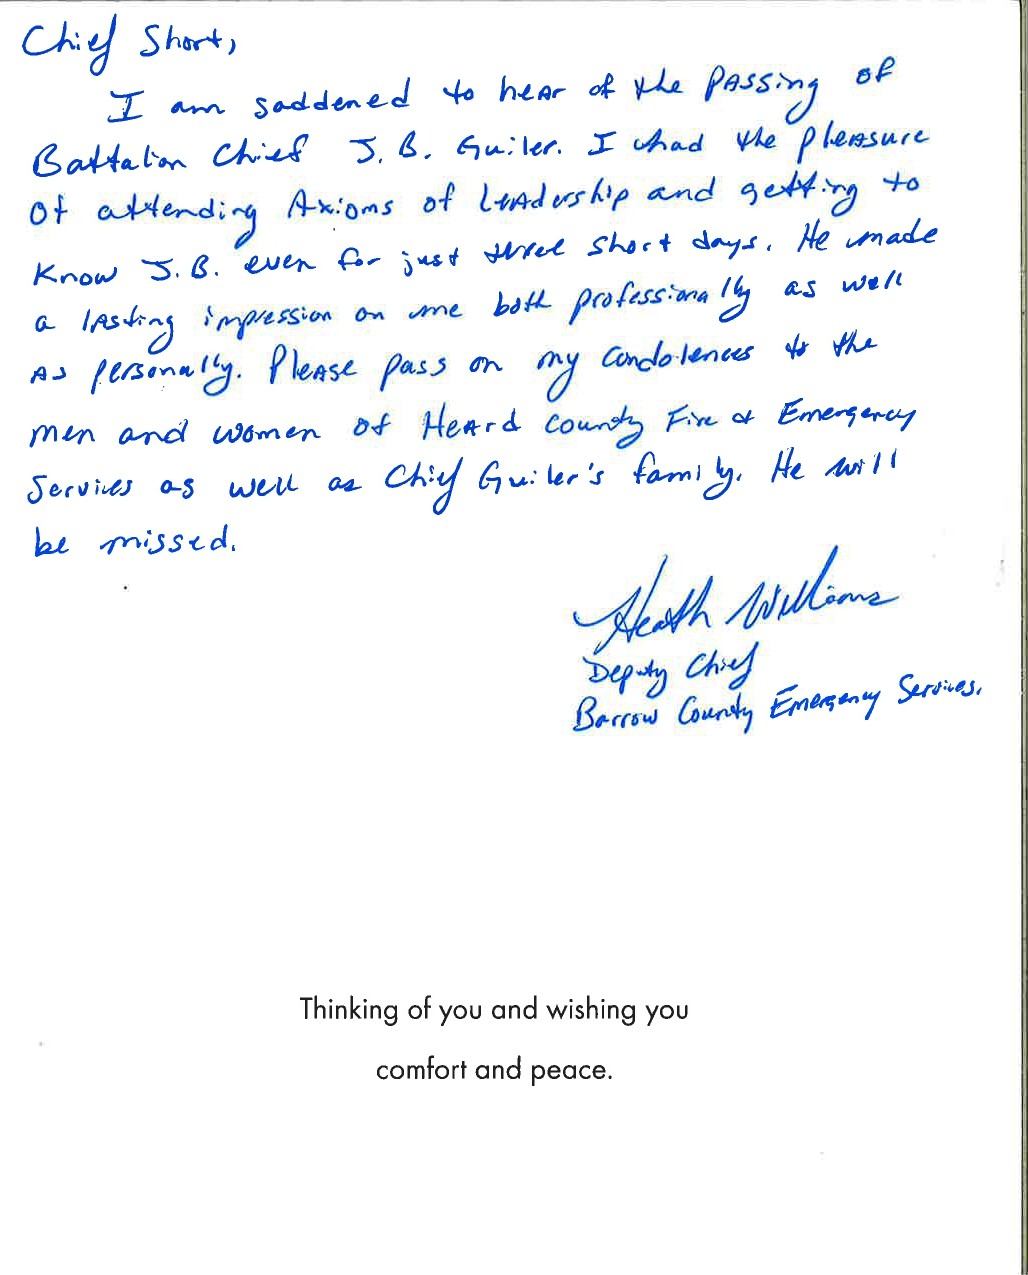 Chief Short,
I am saddened to hear of the passing of
Battalion Chief J. B. Guiler. I had the pleasure
of attending Axioms of Leadership and getting to
know J. B. even for just three short days. He made
a lasting impression on me both professionally as well
as personally. Please pass on my condolences to the
men and women of Heard County Fire & Emergency
Services as well as Chief Guiler's family. He will
be missed.
Heath Williams
Deputy Chief
Barrow County Emergency Services.
Thinking of you and wishing you
comfort and peace.